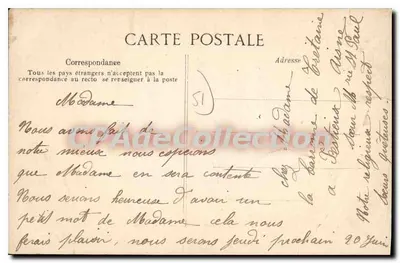 CARTE POSTALE
Correspondance
Tous les pays étrangers n'acceptent pas la
correspondance au recto se renseigner à la poste
Adresse
51
Madame
Nous avons fait de
notre mieux nous espérons
que Madame en sera contente
Nous serons heureuse d'avoir un
petit mot de Madame cela nous
ferais plaisir, nous serons jeudi prochain 20 Juin
chez Madame
la baronne de
à Aisne
rue St Paul
Notre religieux respect